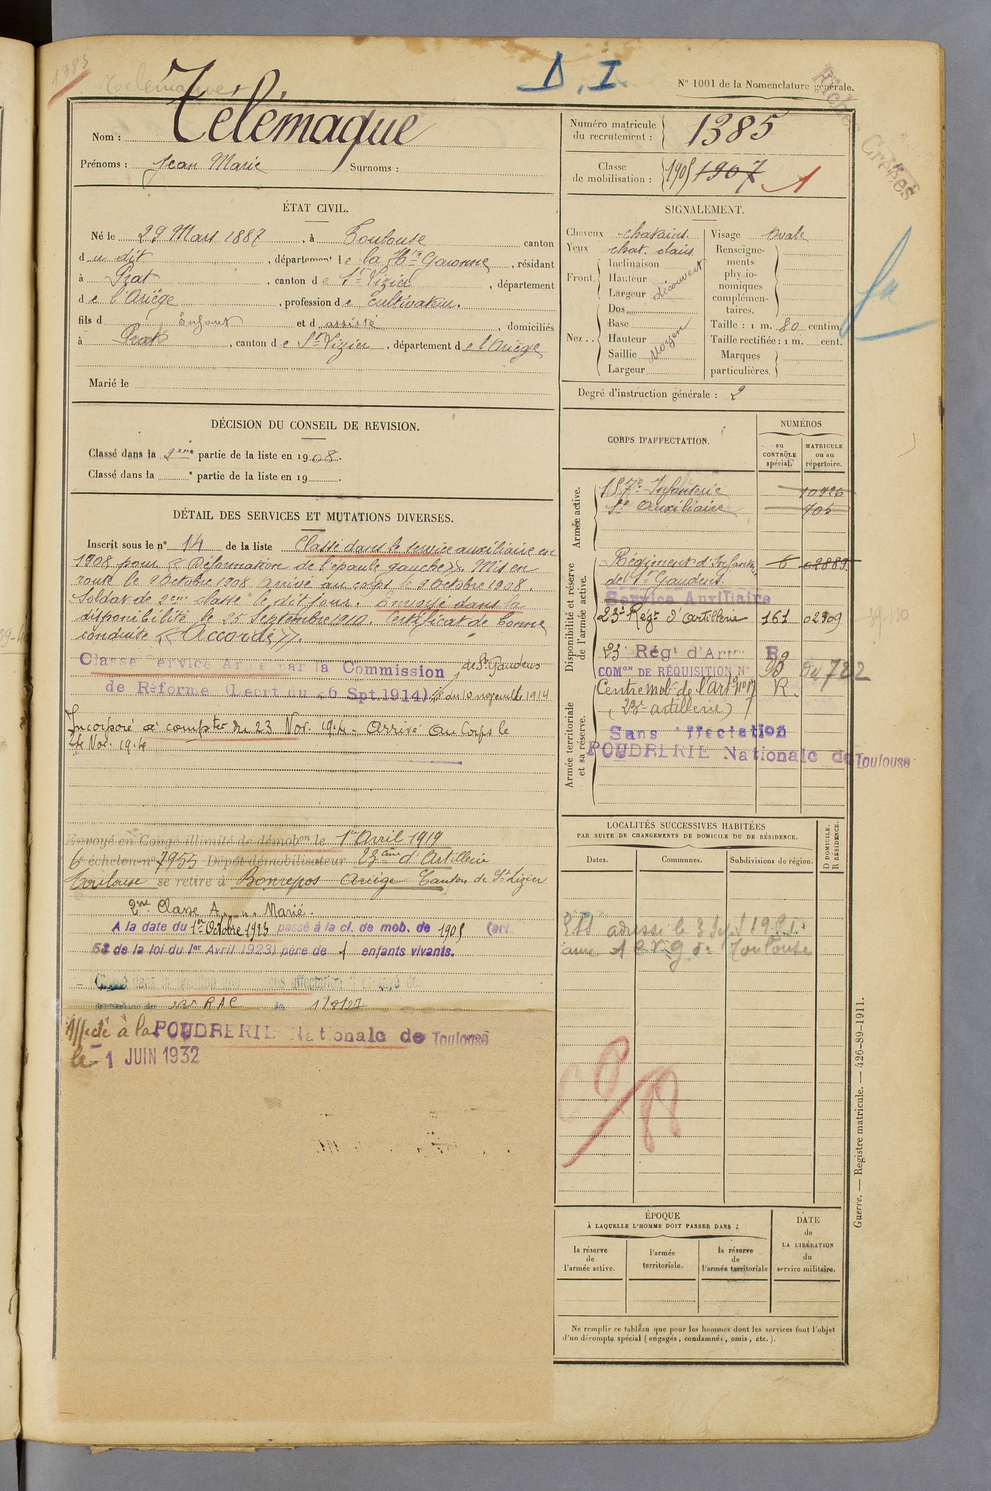 1385
D. I.
N° 1001 de la Nomenclature générale.
Nom : Télémaque
Prénoms : Jean Marie Surnoms :
Numéro matricule du recrutement : 1385
Classe de mobilisation : 1905 1907 1
ÉTAT CIVIL.
Né le 29 Mars 1887, à Toulouse canton
du dit, département de la Hte Garonne, résidant
à Prat, canton de St Lizier, département
de l'Ariège, profession de Cultivateur.
fils d Enfant et d assisté, domiciliés
à Prat, canton de St Lizier, département de l'Ariège
Marié le
SIGNALEMENT.
Cheveux chatains.
Yeux chat. clairs
Front Inclinaison
Hauteur découvert
Largeur
Nez Dos
Base
Hauteur Moyen
Saillie
Largeur
Visage Ovale
Renseignements physionomiques complémentaires.
Taille : 1 m. 80 centim.
Taille rectifiée : 1 m. cent.
Marques particulières.
Degré d'instruction générale : 2
DÉCISION DU CONSEIL DE REVISION.
Classé dans la 2eme partie de la liste en 1908.
Classé dans la e partie de la liste en 19 .
CORPS D'AFFECTATION.
NUMÉROS
au CONTRÔLE spécial.
MATRICULE ou au répertoire.
DÉTAIL DES SERVICES ET MUTATIONS DIVERSES.
Inscrit sous le n° 14 de la liste Classé dans le service auxiliaire en
1908 pour « Déformation de l'épaule gauche ». Mis en
route le 9 Octobre 1908. Arrivé au corps le 9 Octobre 1908.
Soldat de 2eme classe le dit jour. Envoyé dans la
disponibilité le 25 Septembre 1910. Certificat de bonne
conduite « Accordé ».
Classé service Armé par la Commission de St Gaudens
de Réforme (Décret du 26 Spt. 1914) du 10 novembre 1914
Incorporé à compter du 23 Nov. 1914. Arrivé au Corps le
Nov. 1914
Envoyé en Congé illimité de démobon le 1er Avril 1919
6e échelon n° 7955 Dépôt démobilisateur 23eme d'Artillerie
Toulouse se retire à Bonrepos Ariège Canton de St Lizier
2me Classe A Marié.
A la date du 1er Octobre 1923 passé à la cl. de mob. de 1905 (art.
58 de la loi du 1er Avril 1923) père de 1 enfants vivants.
RAC
Affecté à la POUDRERIE Nationale de Toulouse
le 1 JUIN 1932
Armée active.
157e Infanterie
Sn Auxiliaire 705
Disponibilité et réserve de l'armée active.
Régiment d'Infanterie 6 02889
de St Gaudens
Service Auxiliaire
23e Régt d'Artillerie 161 02909
23 Rég. d'Art
COMon DE RÉQUISITION N° 722
Centre mob. de l'art n° 17 R.
(23e artillerie)
Armée territoriale et sa réserve.
Sans Affectation
POUDRERIE Nationale de Toulouse
LOCALITÉS SUCCESSIVES HABITÉES
PAR SUITE DE CHANGEMENTS DE DOMICILE OU DE RÉSIDENCE.
Dates. Communes. Subdivisions de région. D DOMICILE. R RÉSIDENCE.
adressé le
Toulouse
ÉPOQUE
À LAQUELLE L'HOMME DOIT PASSER DANS :
la réserve de l'armée active.
l'armée territoriale.
la réserve de l'armée territoriale
DATE de LA LIBÉRATION du service militaire.
Ne remplir ce tableau que pour les hommes dont les services font l'objet
d'un décompte spécial (engagés, condamnés, omis, etc.).
Guerre. — Registre matricule. — 426-89-1911.